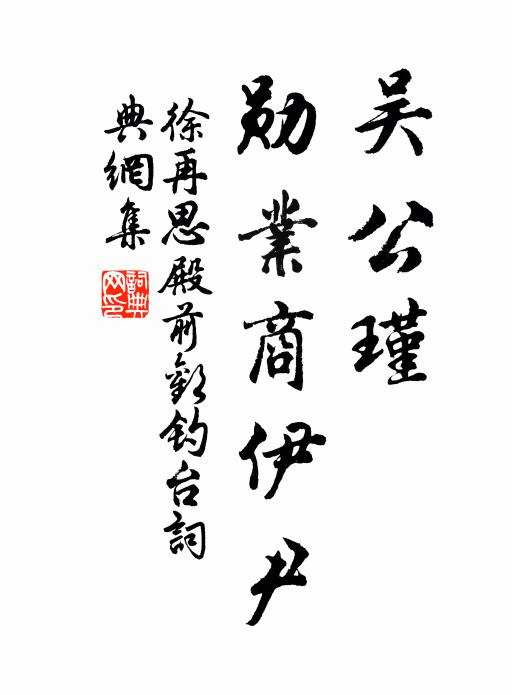 吴公瑾
勋業商伊尹
徐再思殿前歡釣台詞
典網集
詞典
网印